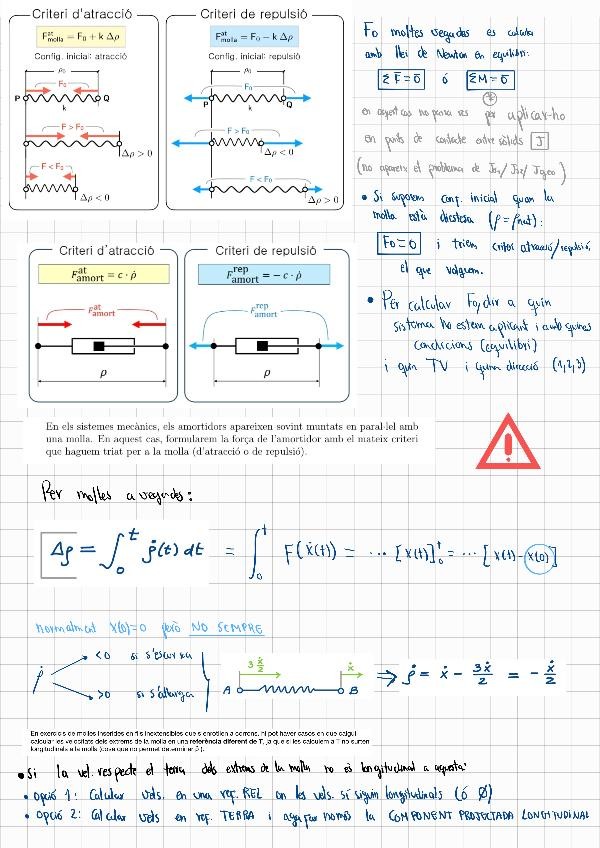 Criteri d'atracció
F^at_molla = F₀ + k Δρ
Config. inicial: atracció
ρ₀
F₀
P
Q
k
F > F₀
Δρ > 0
F < F₀
Δρ < 0
Criteri de repulsió
F^at_molla = F₀ − k Δρ
Config. inicial: repulsió
F₀
P
Q
k
F > F₀
Δρ < 0
F < F₀
Δρ > 0
F₀ moltes vegades es calcula
amb llei de Newton en equilibri:
Σ F̄ = 0̄ ó Σ M̄ = 0̄
*
en aquest cas no passa res per aplicar-ho
en punts de contacte entre sòlids J
(no apareix el problema de
• Si suposem conf. inicial quan la
molla està distesa (ρ = ρnat):
F₀ = 0 i triem criteri atracció/repulsió,
el que volguem.
• Per calcular F₀, dir a quin
sistema ho estem aplicant i amb quines
condicions (equilibri)
i quin TV i quina direcció (1,2,3)
Criteri d'atracció
F^at_amort = c · ρ̇
F^at_amort
ρ
Criteri de repulsió
F^rep_amort = − c · ρ̇
F^rep_amort
ρ
En els sistemes mecànics, els amortidors apareixen sovint muntats en paral·lel amb
una molla. En aquest cas, formularem la força de l'amortidor amb el mateix criteri
que haguem triat per a la molla (d'atracció o de repulsió).
Per molles a vegades:
Δρ = ∫₀ᵗ ρ̇(t) dt = ∫₀ᵗ F(ẋ(t)) = ... [x(t)]₀ᵗ = ... [x(t) - x(0)]
normalment x(0)=0 però NO SEMPRE
ρ̇
<0 si s'escurça
>0 si s'allarga
3ẋ/2
ẋ
A
B
⇒ ρ̇ = ẋ − 3ẋ/2 = − ẋ/2
En exercicis de molles inserides en fils inextensibles que s'enrotllen a corrons, hi pot haver casos en que calgui
calcular les velocitats dels extrems de la molla en una referència diferent de T, ja que si les calculem a T no surten
longitudinals a la molla (cosa que no permet determinar ρ̇).
• Si la vel. respecte el terra dels extrems de la molla no és longitudinal a aquesta:
• opció 1: Calcular vels. en una ref. REL on les vels. sí siguin longitudinals (ó Ø)
• opció 2: Calcular vels en ref. TERRA i agafar només la COMPONENT PROJECTADA LONGITUDINAL